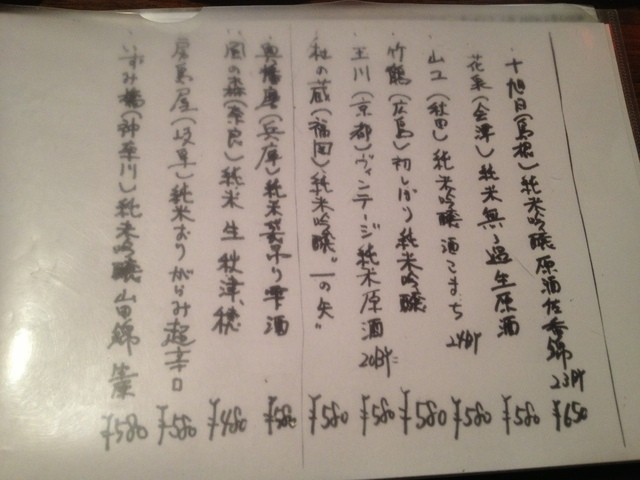 十旭日(島根)純米吟醸原酒佐香錦23BY ¥650
花泉(会津)純米無ろ過生原酒 ¥580
山ユ(秋田)純米吟醸酒こまち24BY ¥580
竹鶴(広島)初しぼり純米吟醸 ¥580
玉川(京都)ヴィンテージ純米原酒20BY ¥580
杜の蔵(福岡)純米吟醸"一の矢" ¥580
奥播磨(兵庫)純米袋吊り雫酒 ¥580
風の森(奈良)純米 生 秋津穂 ¥480
(岐阜)純米おりがらみ超辛口 ¥580
いずみ橋(神奈川)純米吟醸 山田錦 ¥580